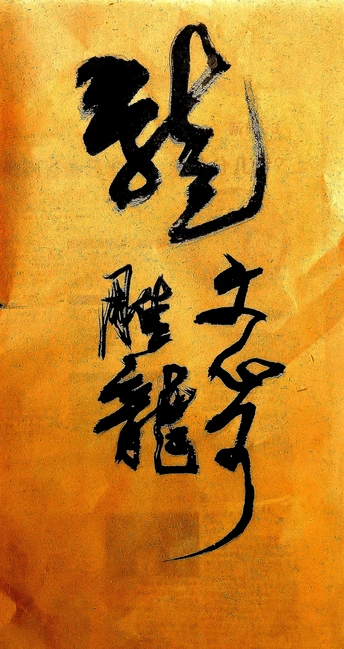 龍
文心可
雕龍